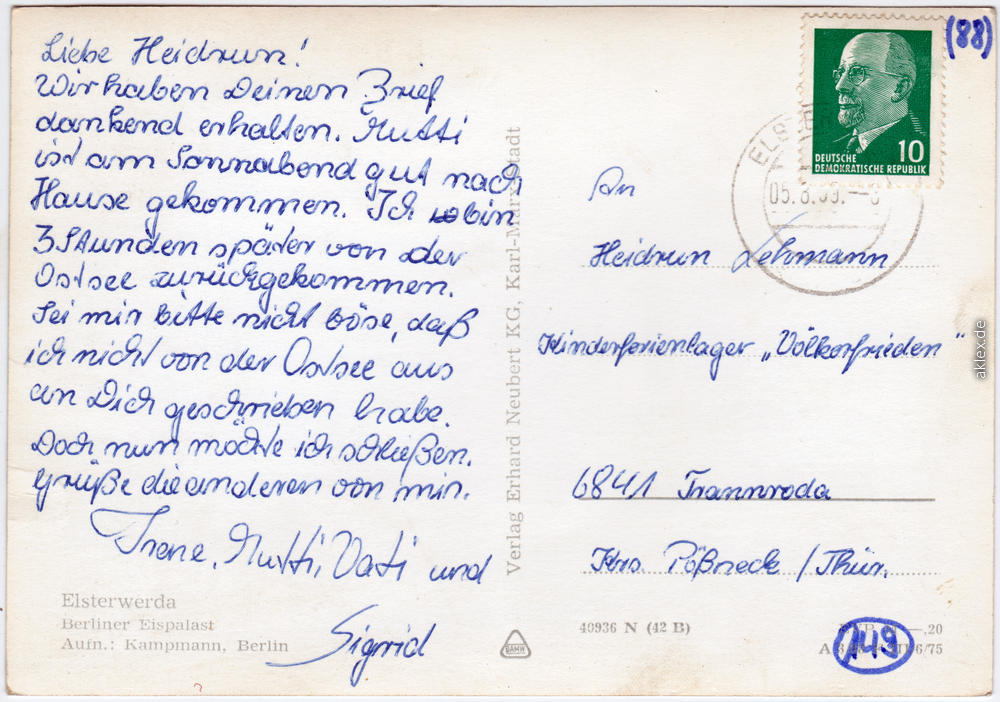 Liebe Heidrun!
Wir haben Deinen Brief
dankend erhalten. Mutti
ist am Sonnabend gut nach
Hause gekommen. Ich bin
3 Stunden später von der
Ostsee zurückgekommen.
Sei mir bitte nicht böse, daß
ich nicht von der Ostsee aus
an Dich geschrieben habe.
Doch nun möchte ich schließen.
Grüße die anderen von mir.
Irene, Mutti, Vati und
Sigrid
Elsterwerda
Berliner Eispalast
Aufn.: Kampmann, Berlin
Verlag Erhard Neubert KG, Karl-Marx-Stadt
BÄHW
(88)
10
DEUTSCHE
DEMOKRATISCHE REPUBLIK
05. 8.
An
Heidrun Lehmann
Kinderferienlager „Völkerfrieden"
6841 Trannroda
Krs. Pößneck / Thür.
40936 N (42 B)
,20
6/75
149
aklex.de